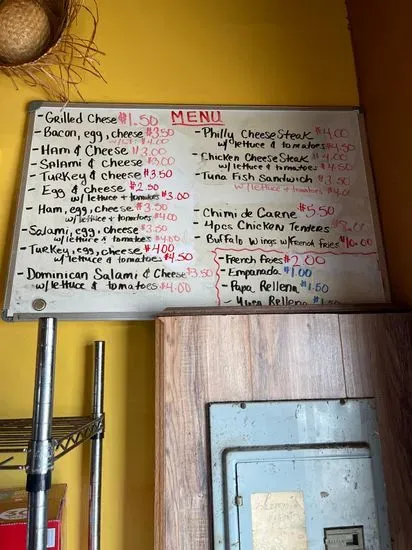 MENU
- Grilled Chese $1.50
- Bacon, egg, cheese $3.50
w/L&T $4.00
- Ham & Cheese $3.00
- Salami & cheese $3.00
- Turkey & cheese $3.50
- Egg & cheese $2.50
w/ lettuce + tomatoes $3.00
- Ham, egg, cheese $3.50
w/ lettuce + tomatoes $4.00
- Salami, egg, cheese $3.50
w/ lettuce & tomatoes $4.00
- Turkey, egg, cheese $4.00
w/ lettuce & tomatoes $4.50
- Dominican Salami & Cheese $3.50
w/ lettuce & tomatoes $4.00
- Philly CheeseSteak $4.00
w/ lettuce & tomatoes $4.50
- Chicken CheeseSteak $4.00
w/ lettuce & tomatoes $4.50
- Tuna Fish Sandwich $3.50
w/ lettuce + tomatoes $4.00
- Chimi de Carne $5.50
- 4pcs Chicken Tenders
- Buffalo Wings w/French fries $10.00
- French Fries $2.00
- Empanada $1.00
- Papa Rellena $1.50
- Yuca Rellena $1.50